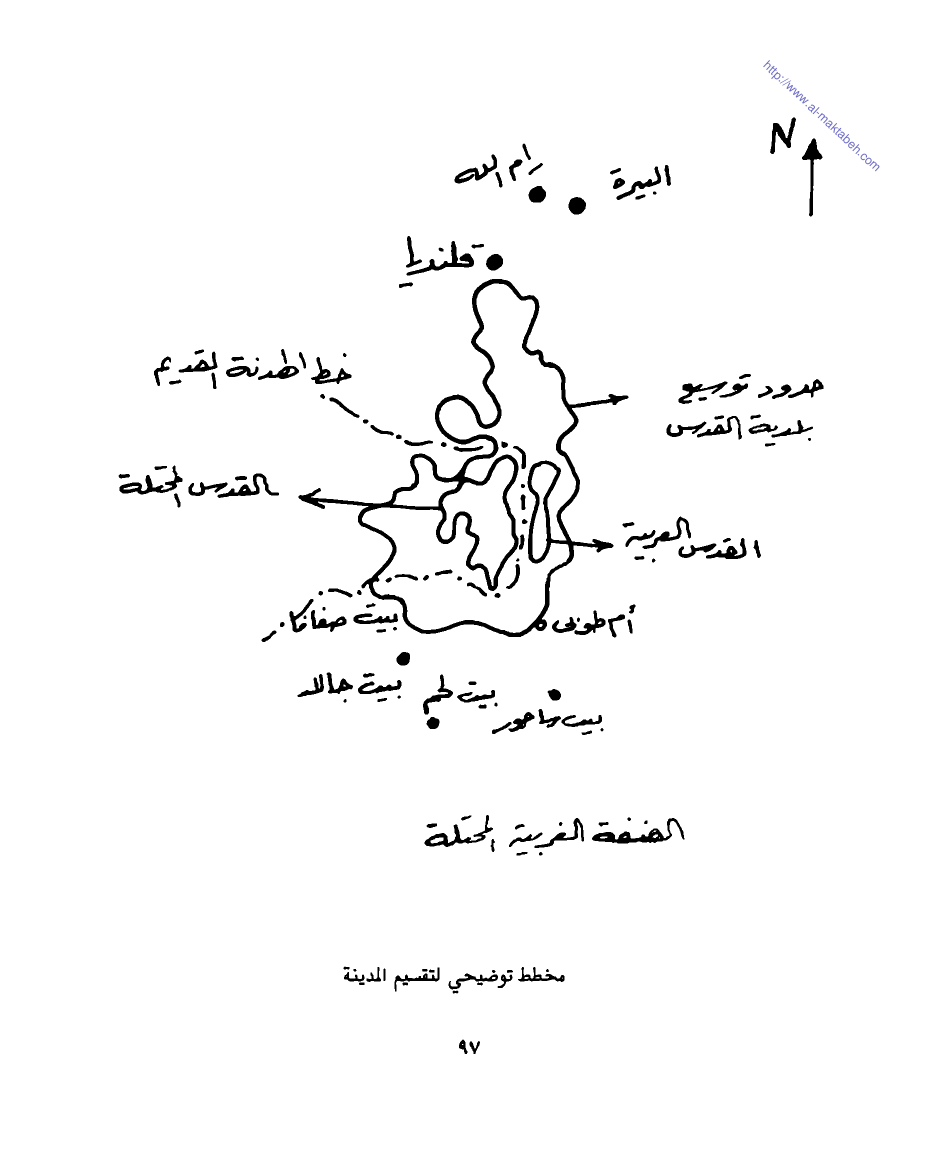 http://www.al-maktabeh.com
N
رام الله
البيرة
قلنديا
خط الهدنة القديم
حدود توسيع
بلدية القدس
القدس المحتلة
القدس العربية
بيت صفافا
أم طوبى
بيت جالا
بيت لحم
بيت ساحور
الضفة الغربية المحتلة
مخطط توضيحي لتقسيم المدينة
٩٧